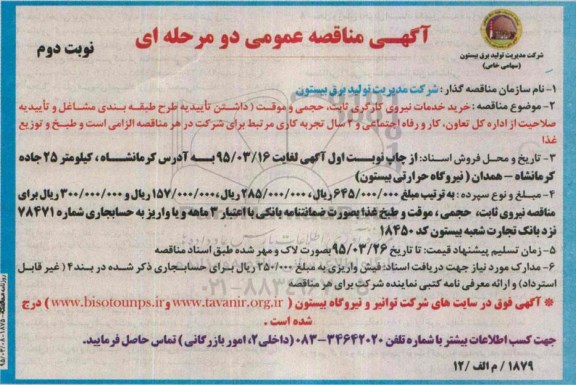 آگهـی مناقصه عمومی دو مرحله ای
نوبت دوم
شرکت مدیریت تولید برق بیستون
(سهامی خاص)
۱- نام سازمان مناقصه گذار: شرکت مدیریت تولید برق بیستون
۲- موضوع مناقصه: خرید خدمات نیروی کارگری ثابت، حجمی و موقت ( داشتن تأییدیه طرح طبقه بندی مشاغل و تأییدیه
صلاحیت از اداره کل تعاون، کار و رفاه اجتماعی و ۳ سال تجربه کاری مرتبط برای شرکت در هر مناقصه الزامی است و طبخ و توزیع
غذا
۳- تاریخ و محل فروش اسناد: از چاپ نوبت اول آگهی لغایت ۹۵/۰۳/۱۶ به آدرس کرمانشاه ، کیلومتر ۲۵ جاده
کرمانشاه - همدان ( نیروگاه حرارتی بیستون)
۴- مبلغ و نوع سپرده: به ترتیب مبلغ ۶۴۵/۰۰۰/۰۰۰ ریال، ۲۸۵/۰۰۰/۰۰۰ ریال، ۱۵۷/۰۰۰/۰۰۰ ریال و ۳۰۰/۰۰۰/۰۰۰ ریال برای
مناقصه نیروی ثابت، حجمی، موقت و طبخ غذا بصورت ضمانتنامه بانکی با اعتبار ۳ ماهه و یا واریز به حسابجاری شماره ۷۸۴۷۱
نزد بانک تجارت شعبه بیستون کد ۱۸۴۵۰
۵- زمان تسلیم پیشنهاد قیمت: تا تاریخ ۹۵/۰۳/۲۶ بصورت لاک و مهر شده طبق اسناد مناقصه
۶- مدارک مورد نیاز جهت دریافت اسناد: فیش واریزی به مبلغ ۲۵۰/۰۰۰ ریال برای حسابجاری ذکر شده در بند ۴ ( غیر قابل
استرداد) و ارائه معرفی نامه کتبی نماینده شرکت برای هر مناقصه
* آگهی فوق در سایت های شرکت توانیر و نیروگاه بیستون ( www.tavanir.org.ir و www.bisotounps.ir) درج
شده است .
جهت کسب اطلاعات بیشتر با شماره تلفن ۳۴۶۴۲۰۲۰-۰۸۳ (داخلی ۲، امور بازرگانی ) تماس حاصل فرمایید.
۱۸۷۹ / م الف /۱۲